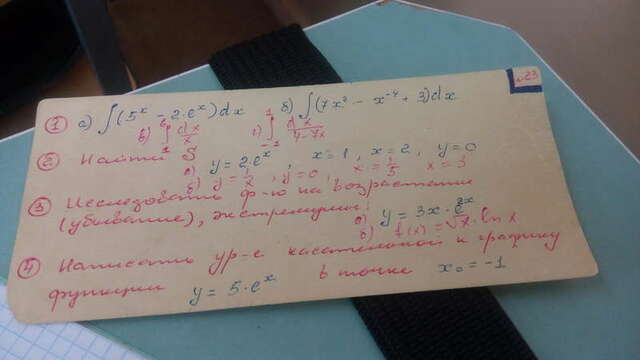 №23
① а) ∫(5ˣ − 2·eˣ)dx б) ∫(7x² − x⁻⁴ + 3)dx
в) ∫ dx/x г) ∫ dx/(4−7x)
② Найти S
а) y = 2·eˣ, x = 1, x = 2, y = 0
б) y = 1/x, y = 0, x = 1/3, x = 3
③ Исследовать ф-ю на возрастание
(убывание), экстремумы:
а) y = 3x·e²ˣ
б) f(x) = √x·ln x
④ Написать ур-е касательной к графику
функции y = 5·eˣ в точке x₀ = −1